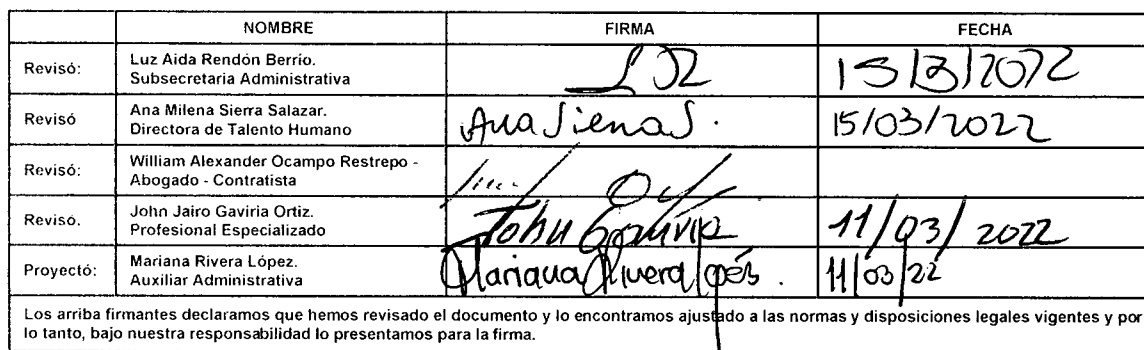 NOMBRE FIRMA FECHA
Revisó: Luz Aida Rendón Berrío.
Subsecretaria Administrativa
15/3/2022
Revisó Ana Milena Sierra Salazar.
Directora de Talento Humano
Ana Sierra S. 15/03/2022
Revisó: William Alexander Ocampo Restrepo -
Abogado - Contratista
Revisó. John Jairo Gaviria Ortiz.
Profesional Especializado
John Gaviria 11/03/2022
Proyectó: Mariana Rivera López.
Auxiliar Administrativa
Mariana Rivera López. 11/03/22
Los arriba firmantes declaramos que hemos revisado el documento y lo encontramos ajustado a las normas y disposiciones legales vigentes y por
lo tanto, bajo nuestra responsabilidad lo presentamos para la firma.